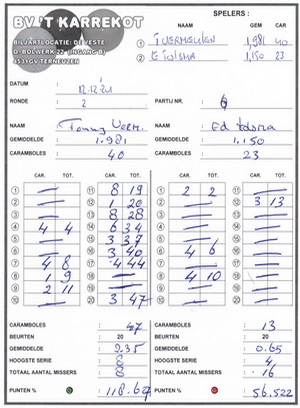 BV 'T KARREKOT
BILJARTLOCATIE: DE VESTE
D. BOLWERK 22 (INGANG B)
4531GV TERNEUZEN
SPELERS :
NAAM GEM CAR
1 T VERMEULEN 1,981 40
2 E Tolsma 1,150 23
DATUM :
RONDE : 2 PARTIJ NR. : 6
NAAM : Tonny Verm. NAAM : Ed Tolsma
GEMIDDELDE : 1.981 GEMIDDELDE : 1.150
CARAMBOLES : 40 CARAMBOLES : 23
CAR. TOT. CAR. TOT. CAR. TOT. CAR. TOT.
1 — 11 8 19 1 2 2 11 —
2 — 12 1 20 2 — 12 3 13
3 — 13 8 28 3 — 13 —
4 4 4 14 6 34 4 — 14 —
5 — 15 3 37 5 — 15 —
6 — 16 3 40 6 4 6 16 —
7 4 8 17 4 44 7 — 17 —
8 1 9 18 — 8 4 10 18 —
9 2 11 19 — 9 — 19 —
10 — 20 3 47 10 — 20 —
CARAMBOLES : 47 CARAMBOLES : 13
BEURTEN : 20 BEURTEN : 20
GEMIDDELDE : 2.35 GEMIDDELDE : 0.65
HOOGSTE SERIE : 8 HOOGSTE SERIE : 4
TOTAAL AANTAL MISSERS : 8 TOTAAL AANTAL MISSERS : 16
PUNTEN % : 118.627 PUNTEN % : 56.522